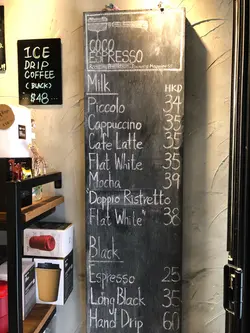 ICE
DRIP
COFFEE
(BLACK)
$48
COCO
ESPRESSO
Milk HKD
Piccolo 34
Cappuccino 35
Cafe Latte 35
Flat White 35
Mocha 39
"Doppio Ristretto
Flat White" 38
Black
Espresso 25
Long Black 35
Hand Drip 60